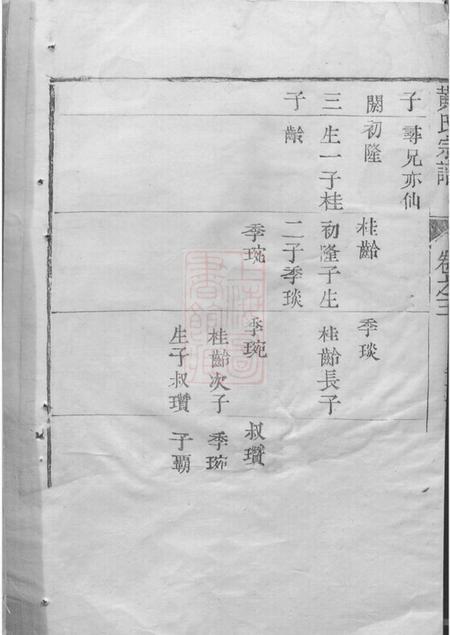 黃氏宗譜
卷之三
子
闕
三
子
尋兄亦仙
初隆
生一子桂
齡
桂齡
初隆子生
二子季琰
季琬
季琰
桂齡長子
季琬
桂齡次子
生子叔瓚
叔瓚
季琬
子覇